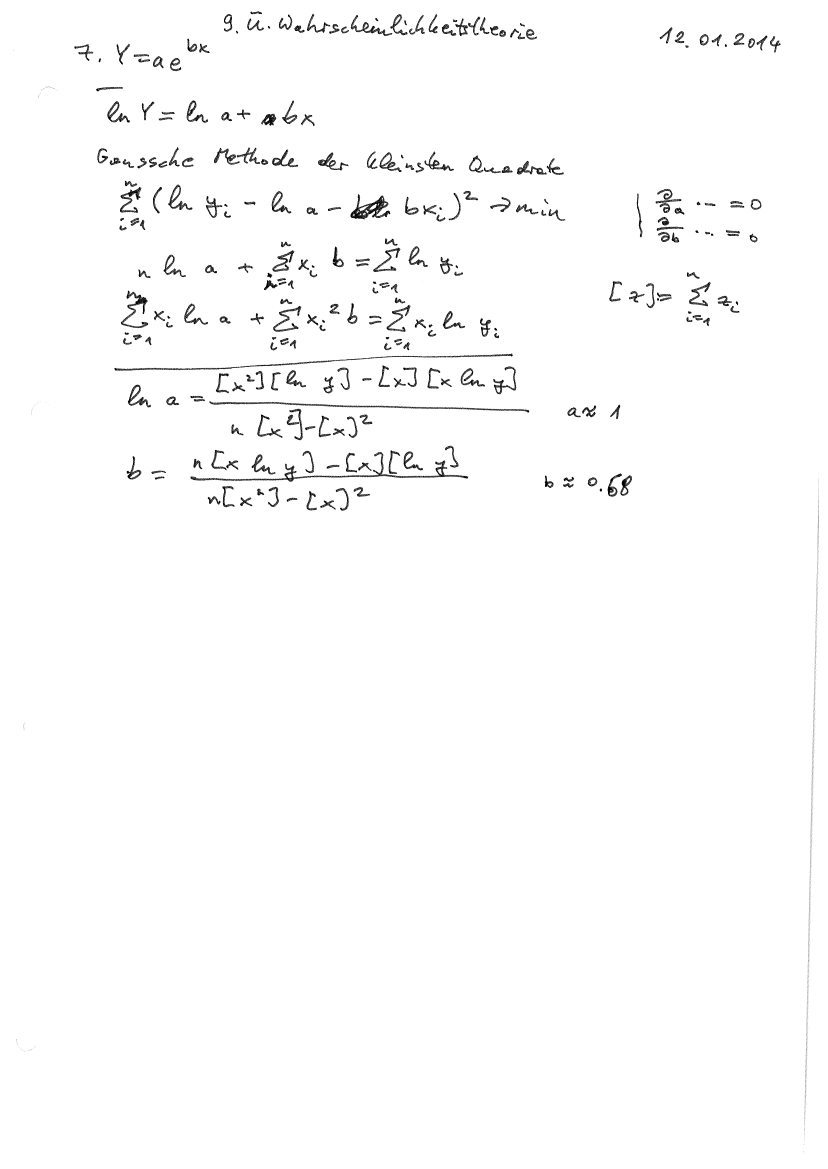 9. Ü. Wahrscheinlichkeitstheorie 12.01.2014
7. Y=ae^{bx}
ln Y = ln a + bx
Gaussche Methode der kleinsten Quadrate
\sum_{i=1}^{n} (ln y_i - ln a - bx_i)^2 → min | ∂/∂a ... = 0
∂/∂b ... = 0
n ln a + \sum_{i=1}^{n} x_i b = \sum_{i=1}^{n} ln y_i
\sum_{i=1}^{n} x_i ln a + \sum_{i=1}^{n} x_i^2 b = \sum_{i=1}^{n} x_i ln y_i [z] = \sum_{i=1}^{n} z_i
ln a = \frac{[x^2][ln y] - [x][x ln y]}{n [x^2] - [x]^2} a ≈ 1
b = \frac{n[x ln y] - [x][ln y]}{n[x^2] - [x]^2} b ≈ 0.68